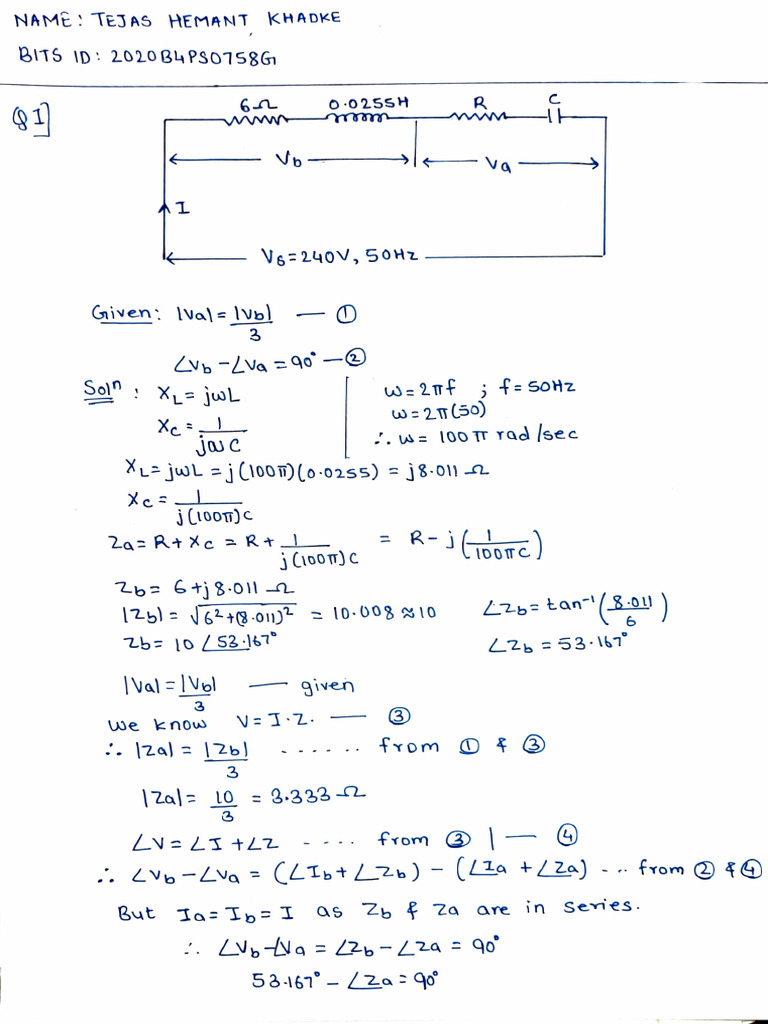 NAME: TEJAS HEMANT KHADKE
BITS ID: 2020B4PS0758G
Q1]
6Ω 0.0255H R C
Vb Va
I
Vs=240V, 50Hz
Given: |Va| = |Vb|/3 — ①
∠Vb - ∠Va = 90° — ②
Solⁿ: XL = jωL ω = 2πf ; f = 50Hz
XC = 1/jωC ω = 2π(50)
∴ ω = 100π rad/sec
XL = jωL = j(100π)(0.0255) = j8.011 Ω
XC = 1/j(100π)C
Za = R + XC = R + 1/j(100π)C = R - j(1/100πC)
Zb = 6 + j8.011 Ω
|Zb| = √6²+(8.011)² = 10.008 ≈ 10 ∠Zb = tan⁻¹(8.011/6)
Zb = 10 ∠53.167° ∠Zb = 53.167°
|Va| = |Vb|/3 — given
We know V = I.Z. — ③
∴ |Za| = |Zb|/3 ...... from ① & ③
|Za| = 10/3 = 3.333 Ω
∠V = ∠I + ∠Z ..... from ③ | — ④
∴ ∠Vb - ∠Va = (∠Ib + ∠Zb) - (∠Ia + ∠Za) ... from ② & ④
But Ia = Ib = I as Zb & Za are in series.
∴ ∠Vb - ∠Va = ∠Zb - ∠Za = 90°
53.167° - ∠Za = 90°